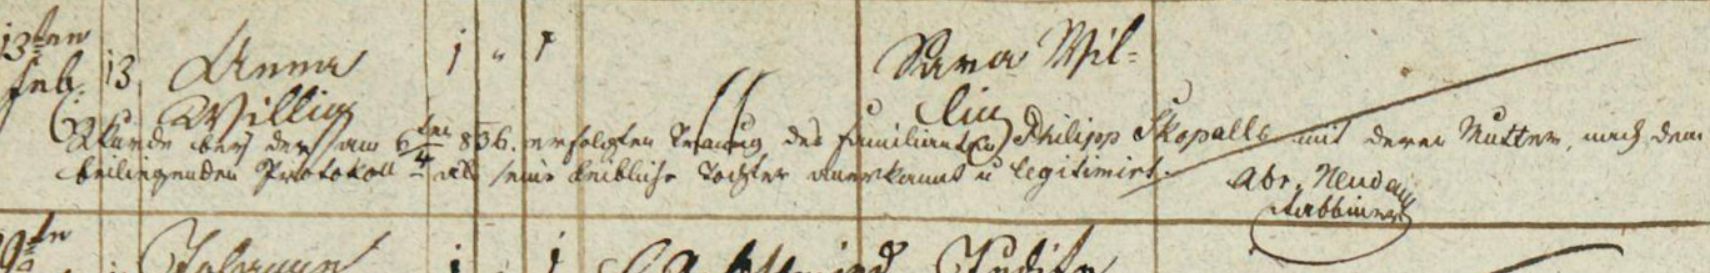 13ten
Feb. 13 Anna 1 " 1 Sara Wil-
Willig lig
Wurde bei der am 6ten/4 836. erfolgten Trauung des Familianten Philipp Skopalle mit deren Mutter, nach dem
beiliegenden Protokoll als seine leibliche Tochter anerkannt u legitimirt.
Abr. Neuda
Rabbiner
1 1 Judith